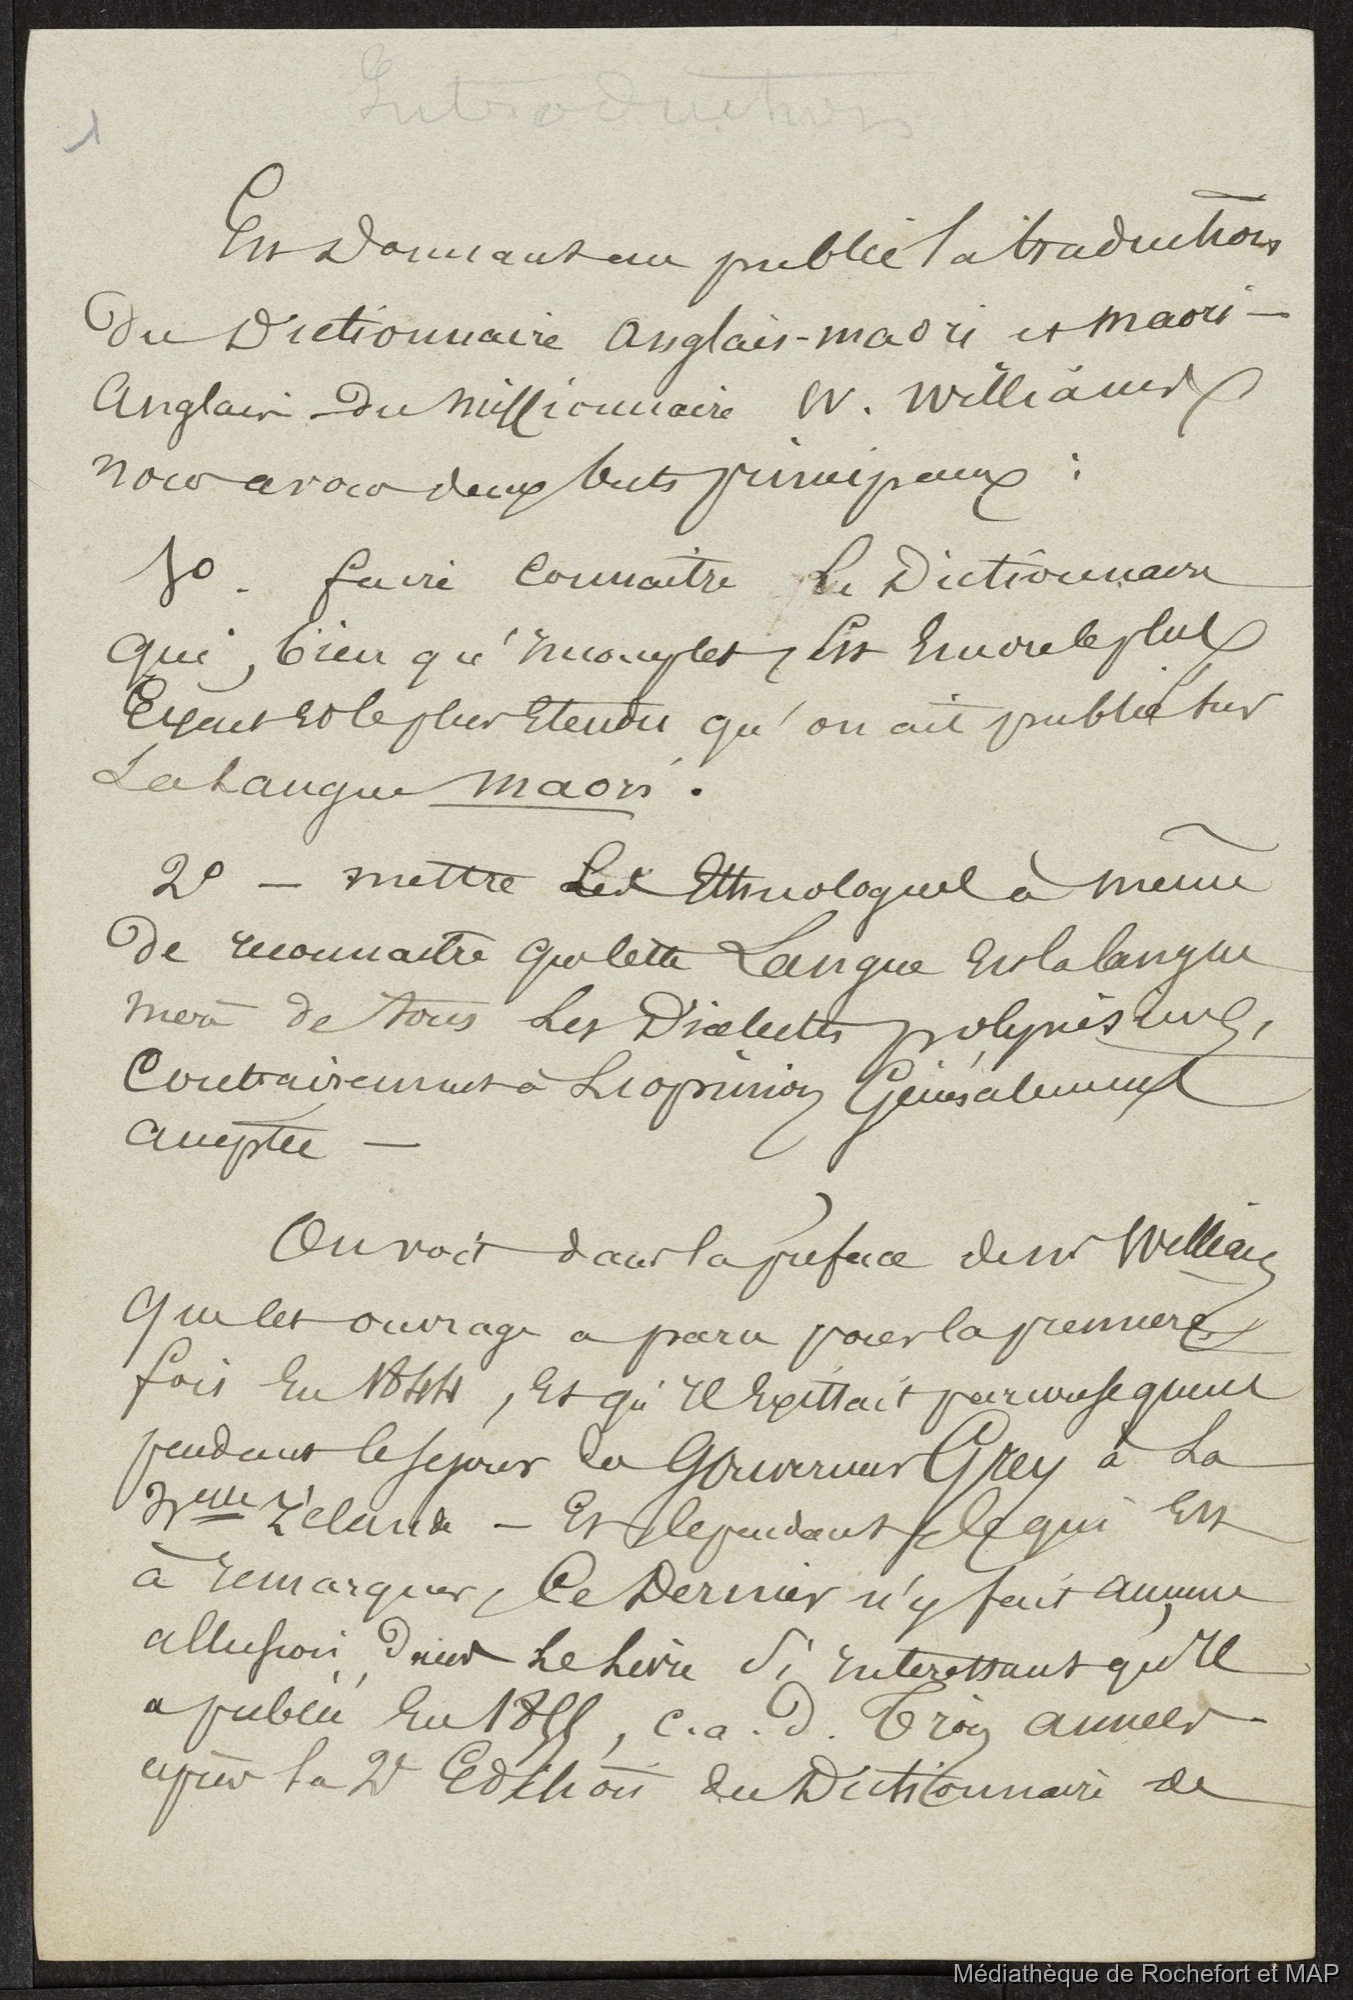 Introduction
1
En donnant au public la traduction
du Dictionnaire Anglais-maori et maori-
Anglais du Missionnaire W. Williams
nous avons deux buts principaux :
1o. faire connaitre le Dictionnaire
qui, bien qu'incomplet, est encore le plus
Exact et le plus Etendu qu'on ait publié sur
La Langue maori.
2o — mettre Les Ethnologues à même
de reconnaitre que cette Langue est la langue
mère de tous les Dialectes polynésiens,
Contrairement à L'opinion Généralement
acceptée —
On voit dans la préface de Mr Williams
que cet ouvrage a paru pour la première
fois En 1844, Et qu'Il Existait par conséquent
pendant le séjour du Gouverneur Grey à La
Nlle Zélande — Et cependant, ce qui Est
à remarquer, Ce Dernier n'y fait aucune
allusion, dans Le Livre si interessant qu'Il
a publié En 1855, c.a.d. Trois années
après la 2e Edition du Dictionnaire de
Médiathèque de Rochefort et MAP